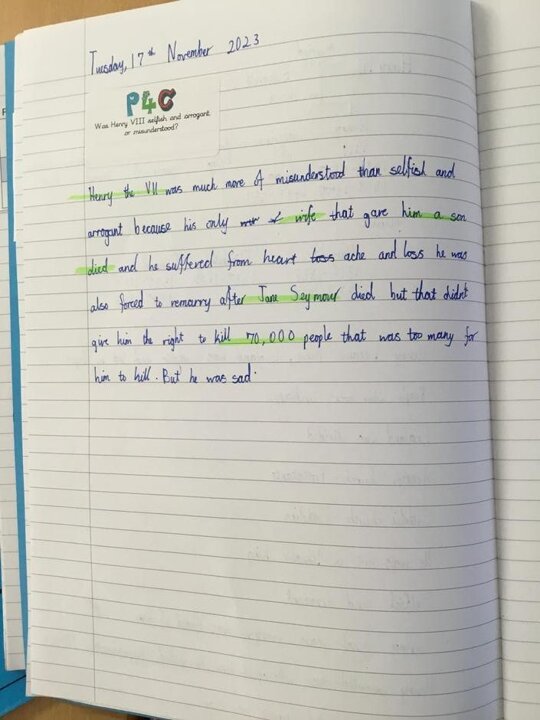 Tuesday, 17th November 2023
P4C
Was Henry VIII selfish and arrogant
or misunderstood?
Henry the VII was much more misunderstood than selfish and
arrogant because his only wife that gave him a son
died and he suffered from heart loss ache and loss he was
also forced to remarry after Jane Seymour died but that didnt
give him the right to kill 70,000 people that was too many for
him to kill. But he was sad.